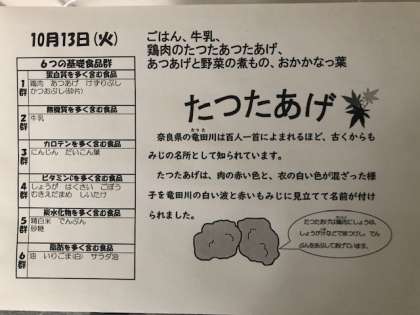 10月13日(火)
ごはん、牛乳、
鶏肉のたつたあつたあげ、
あつあげと野菜の煮もの、おかかなっ葉
6つの基礎食品群
蛋白質を多く含む食品
1群
鶏肉 あつあげ けずりぶし
かつおぶし(砕片)
無機質を多く含む食品
2群
牛乳
カロテンを多く含む食品
3群
にんじん だいこん葉
ビタミンCを多く含む食品
4群
しょうが はくさい ごぼう
むきえだまめ しいたけ
炭水化物を多く含む食品
5群
精白米 でん粉
砂糖
脂肪を多く含む食品
6群
油 いりごま(白) サラダ油
たつたあげ
奈良県の竜田川は百人一首によまれるほど、古くからも
みじの名所として知られています。
たつたあげは、肉の赤い色と、衣の白い色が混ざった様
子を竜田川の白い波と赤いもみじに見立てて名前が付け
られました。
たつたあげは鶏肉にしょうゆ、
しょうが汁などで味つけし、でん
ぷんをまぶしてあげています。